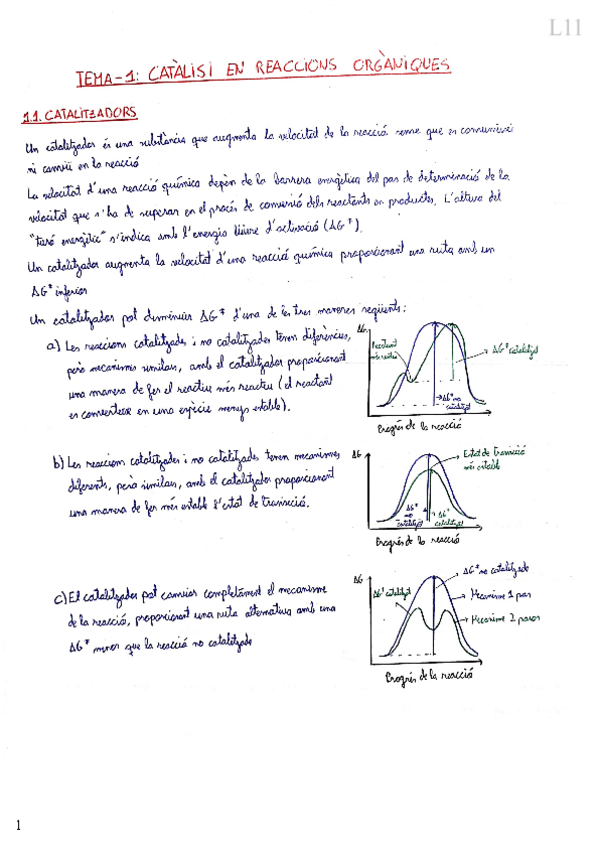 L11
TEMA-1: CATÀLISI EN REACCIONS ORGÀNIQUES
1.1. CATALITZADORS
Un catalitzador és una substància que augmenta la velocitat de la reacció sense que es consumeixi
ni canviï en la reacció
La velocitat d'una reacció química depèn de la barrera energètica del pas de determinació de la
velocitat que s'ha de superar en el procés de conversió dels reactants en productes. L'altura del
"turó energètic" s'indica amb l'energia lliure d'activació (ΔG‡).
Un catalitzador augmenta la velocitat d'una reacció química proporcionant una ruta amb un
ΔG‡ inferior
Un catalitzador pot disminuir ΔG‡ d'una de les tres maneres següents:
a) Les reaccions catalitzades i no catalitzades tenen diferències,
però mecanismes similars, amb el catalitzador proporcionant
una manera de fer el reactiu més reactiu (el reactant
es converteix en una espècie menys estable).
ΔG
Reactant
més reactiu
ΔG‡ catalitzat
ΔG‡ no
catalitzat
Progrés de la reacció
b) Les reaccions catalitzades i no catalitzades tenen mecanismes
diferents, però similars, amb el catalitzador proporcionant
una manera de fer més estable l'estat de transició.
ΔG
Estat de transició
més estable
ΔG‡
no
catalitzat
ΔG‡
catalitzat
Progrés de la reacció
c) El catalitzador pot canviar completament el mecanisme
de la reacció, proporcionant una ruta alternativa amb una
ΔG‡ menor que la reacció no catalitzada
ΔG
ΔG‡ catalitzat
ΔG‡ no catalitzada
Mecanisme 1 pas
Mecanisme 2 passos
Progrés de la reacció
1